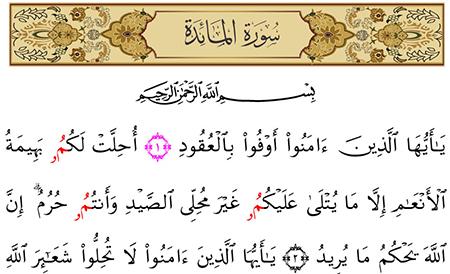 سُورَةُ المَائدَة
بِسْمِ اللَّهِ الرَّحْمَٰنِ الرَّحِيمِ
يَٰٓأَيُّهَا ٱلَّذِينَ ءَامَنُوٓا۟ أَوْفُوا۟ بِٱلْعُقُودِ ١ أُحِلَّتْ لَكُمُۥ بَهِيمَةُ
ٱلْأَنْعَٰمِ إِلَّا مَا يُتْلَىٰ عَلَيْكُمُۥ غَيْرَ مُحِلِّى ٱلصَّيْدِ وَأَنتُمُۥ حُرُمٌ ۗ إِنَّ
ٱللَّهَ يَحْكُمُ مَا يُرِيدُ ٢ يَٰٓأَيُّهَا ٱلَّذِينَ ءَامَنُوا۟ لَا تُحِلُّوا۟ شَعَٰٓئِرَ ٱللَّهِ